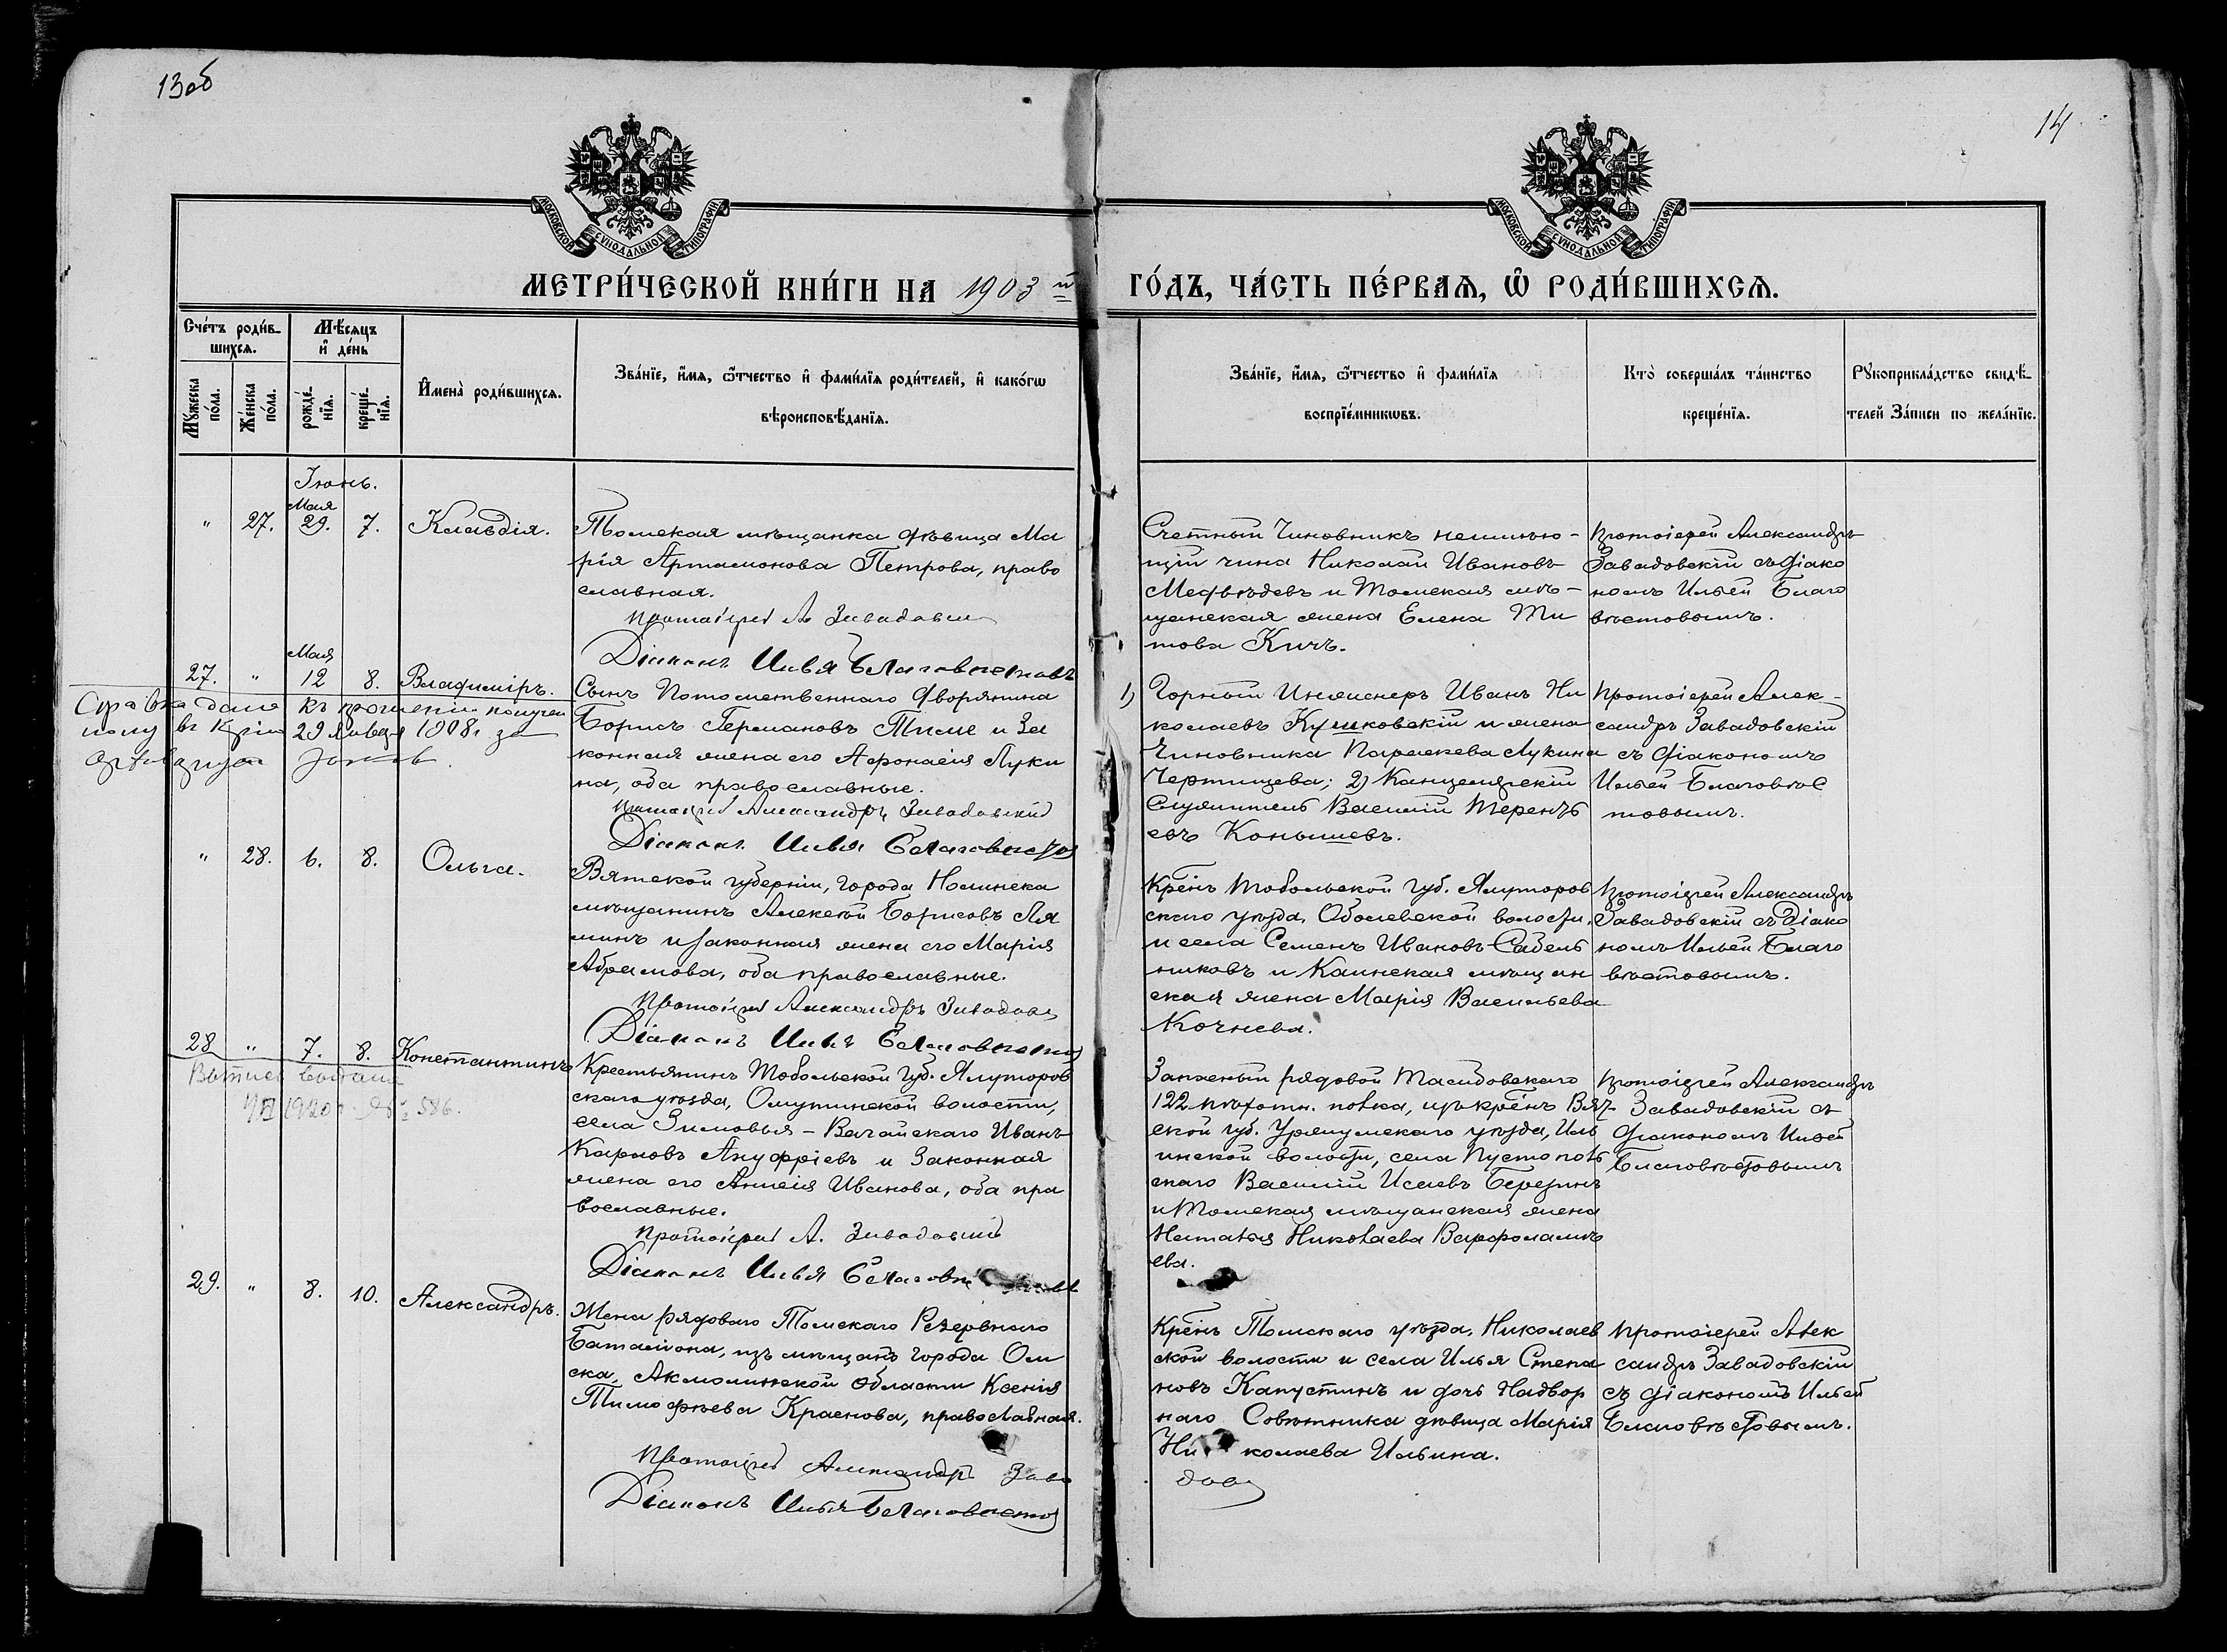 13об
14
МОСКОВСКОЙ СѴНОДАЛЬНОЙ ТИПОГРАФІИ
МОСКОВСКОЙ СѴНОДАЛЬНОЙ ТИПОГРАФІИ
МЕТРИ́ЧЕСКОЙ КНИ́ГИ НА 1903 й ГО́ДЪ, ЧА́СТЬ ПЕ́РВАѦ, Ѡ РОДИ́ВШИХСѦ.
Сче́тъ роди́в-
шихсѧ.
Мѣ́сѧцъ
и҆ де́нь
Мꙋжеска по́ла.
Же́нска по́ла.
рожде́-
нїѧ.
креще́-
нїѧ.
И҆мена̀ роди́вшихсѧ.
Зва́нїе, и҆́мѧ, ѻ҆́тчество и҆ фами́лїѧ роди́телей, и҆ како́гѡ
вѣроисповѣ́данїѧ.
Зва́нїе, и҆́мѧ, ѻ҆́тчество и҆ фами́лїѧ
воспрїе́мникѡвъ.
Кто̀ соверша́лъ та́инство
креще́нїѧ.
Рꙋкоприкла́дство свидѣ́-
телей За́писи по жела́нїю.
Іюнь.
Мая
" 27. 29. 7. Клавдія.
Томская мѣщанка дѣвица Ма
рія Артамонова Петрова, право
славная.
Протоіерей А Завадовскі
Діаконъ Илья Благовѣстовъ
Счетный Чиновникъ неимѣю-
щій чина Николай Ивановъ
Медвѣдевъ и Томская мѣ-
щанская жена Елена Ти
това Кичъ.
Протоіерей Александръ
Завадовскій съ діако
номъ Ильей Благо
вѣстовымъ.
Мая
27. " 12 8. Владиміръ.
Справка дана къ прошенію
29 Января 1908 г. за
Сынъ Потомственнаго дворянина
Борисъ Германовъ Тиме и За
конная жена его Афонасія Луки
на, оба православные.
Протоіерей Александръ Завадовскій
Діаконъ Илья Благовѣстов
1) Горный Инженеръ Иванъ Ни
колаевъ Кушковскій и жена
Чиновника Параскева Лукина
Чертищева; 2) Канцелярскій
Служитель Василій Терентъ
евъ Конышевъ.
Протоіерей Алек-
сандръ Завадовскій
съ діакономъ
Ильей Благовѣс
товымъ.
" 28. 6. 8. Ольга.
Вятской губерніи, города Нолинска
мѣщанинъ Алексѣй Борисовъ Ля
минъ и законная жена его Марія
Абрамова, оба православные.
Протоіерей Александръ Завадовс
Діаконъ Илья Благовѣстов
Крēнъ Тобольской губ. Ялуторов
скаго уѣзда, волости,
и села Семенъ Ивановъ Сабель
никовъ и Каинская мѣщан
ская жена Марія Васильева
Кочнева.
Протоіерей Александръ
Завадовскій съ діако
номъ Ильей Благо
вѣстовымъ.
28 " 7. 8. Константинъ
Выпись выдана
1920 г. № 586.
Крестьянинъ Тобольской губ. Ялуторов
скаго уѣзда, Омутинской волости,
села Зимовья-Вагайскаго Иванъ
Карповъ Ануфріевъ и Законная
жена его Анисія Иванова, оба пра
вославные.
Протоіерей А. Завадовскій
Діаконъ Илья Благовѣ
Запасный рядовой Тамбовскаго
122 пѣхотн. полка, изъ крēнъ Вят
ской губ. Уржумскаго уѣзда, Иль
инской волости, села Пустополь
скаго Василій Исаевъ Березинъ
и Томская мѣщанская жена
Наталья Николаева Варфоламѣ
ева.
Протоіерей Александръ
Завадовскій съ
діакономъ Ильей
Благовѣстовымъ
29. " 8. 10. Александръ.
Жена рядоваго Томскаго Резервнаго
Баталіона, изъ мѣщанъ города Ом
ска, Акмолинской области Ксенія
Тимофѣева Краснова, православная.
Протоіерей Александръ Зава
довс
Діаконъ Илья Благовѣстов
Крēнъ Томскаго уѣзда, Николаев
ской волости и села Илья Степа
новъ Капустинъ и дочь Надвор
наго Совѣтника дѣвица Марія
Ни колаева Ильина.
Протоіерей Алек
сандръ Завадовскій
съ діакономъ Ильей
Благовѣстовымъ.